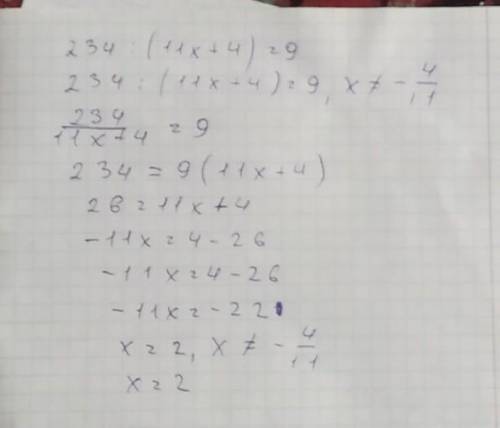 234 : (11x+4) = 9
234 : (11x+4) = 9, x ≠ -4/11
234/11x+4 = 9
234 = 9(11x+4)
26 = 11x+4
-11x = 4-26
-11x = 4-26
-11x = -22
x = 2, x ≠ -4/11
x = 2